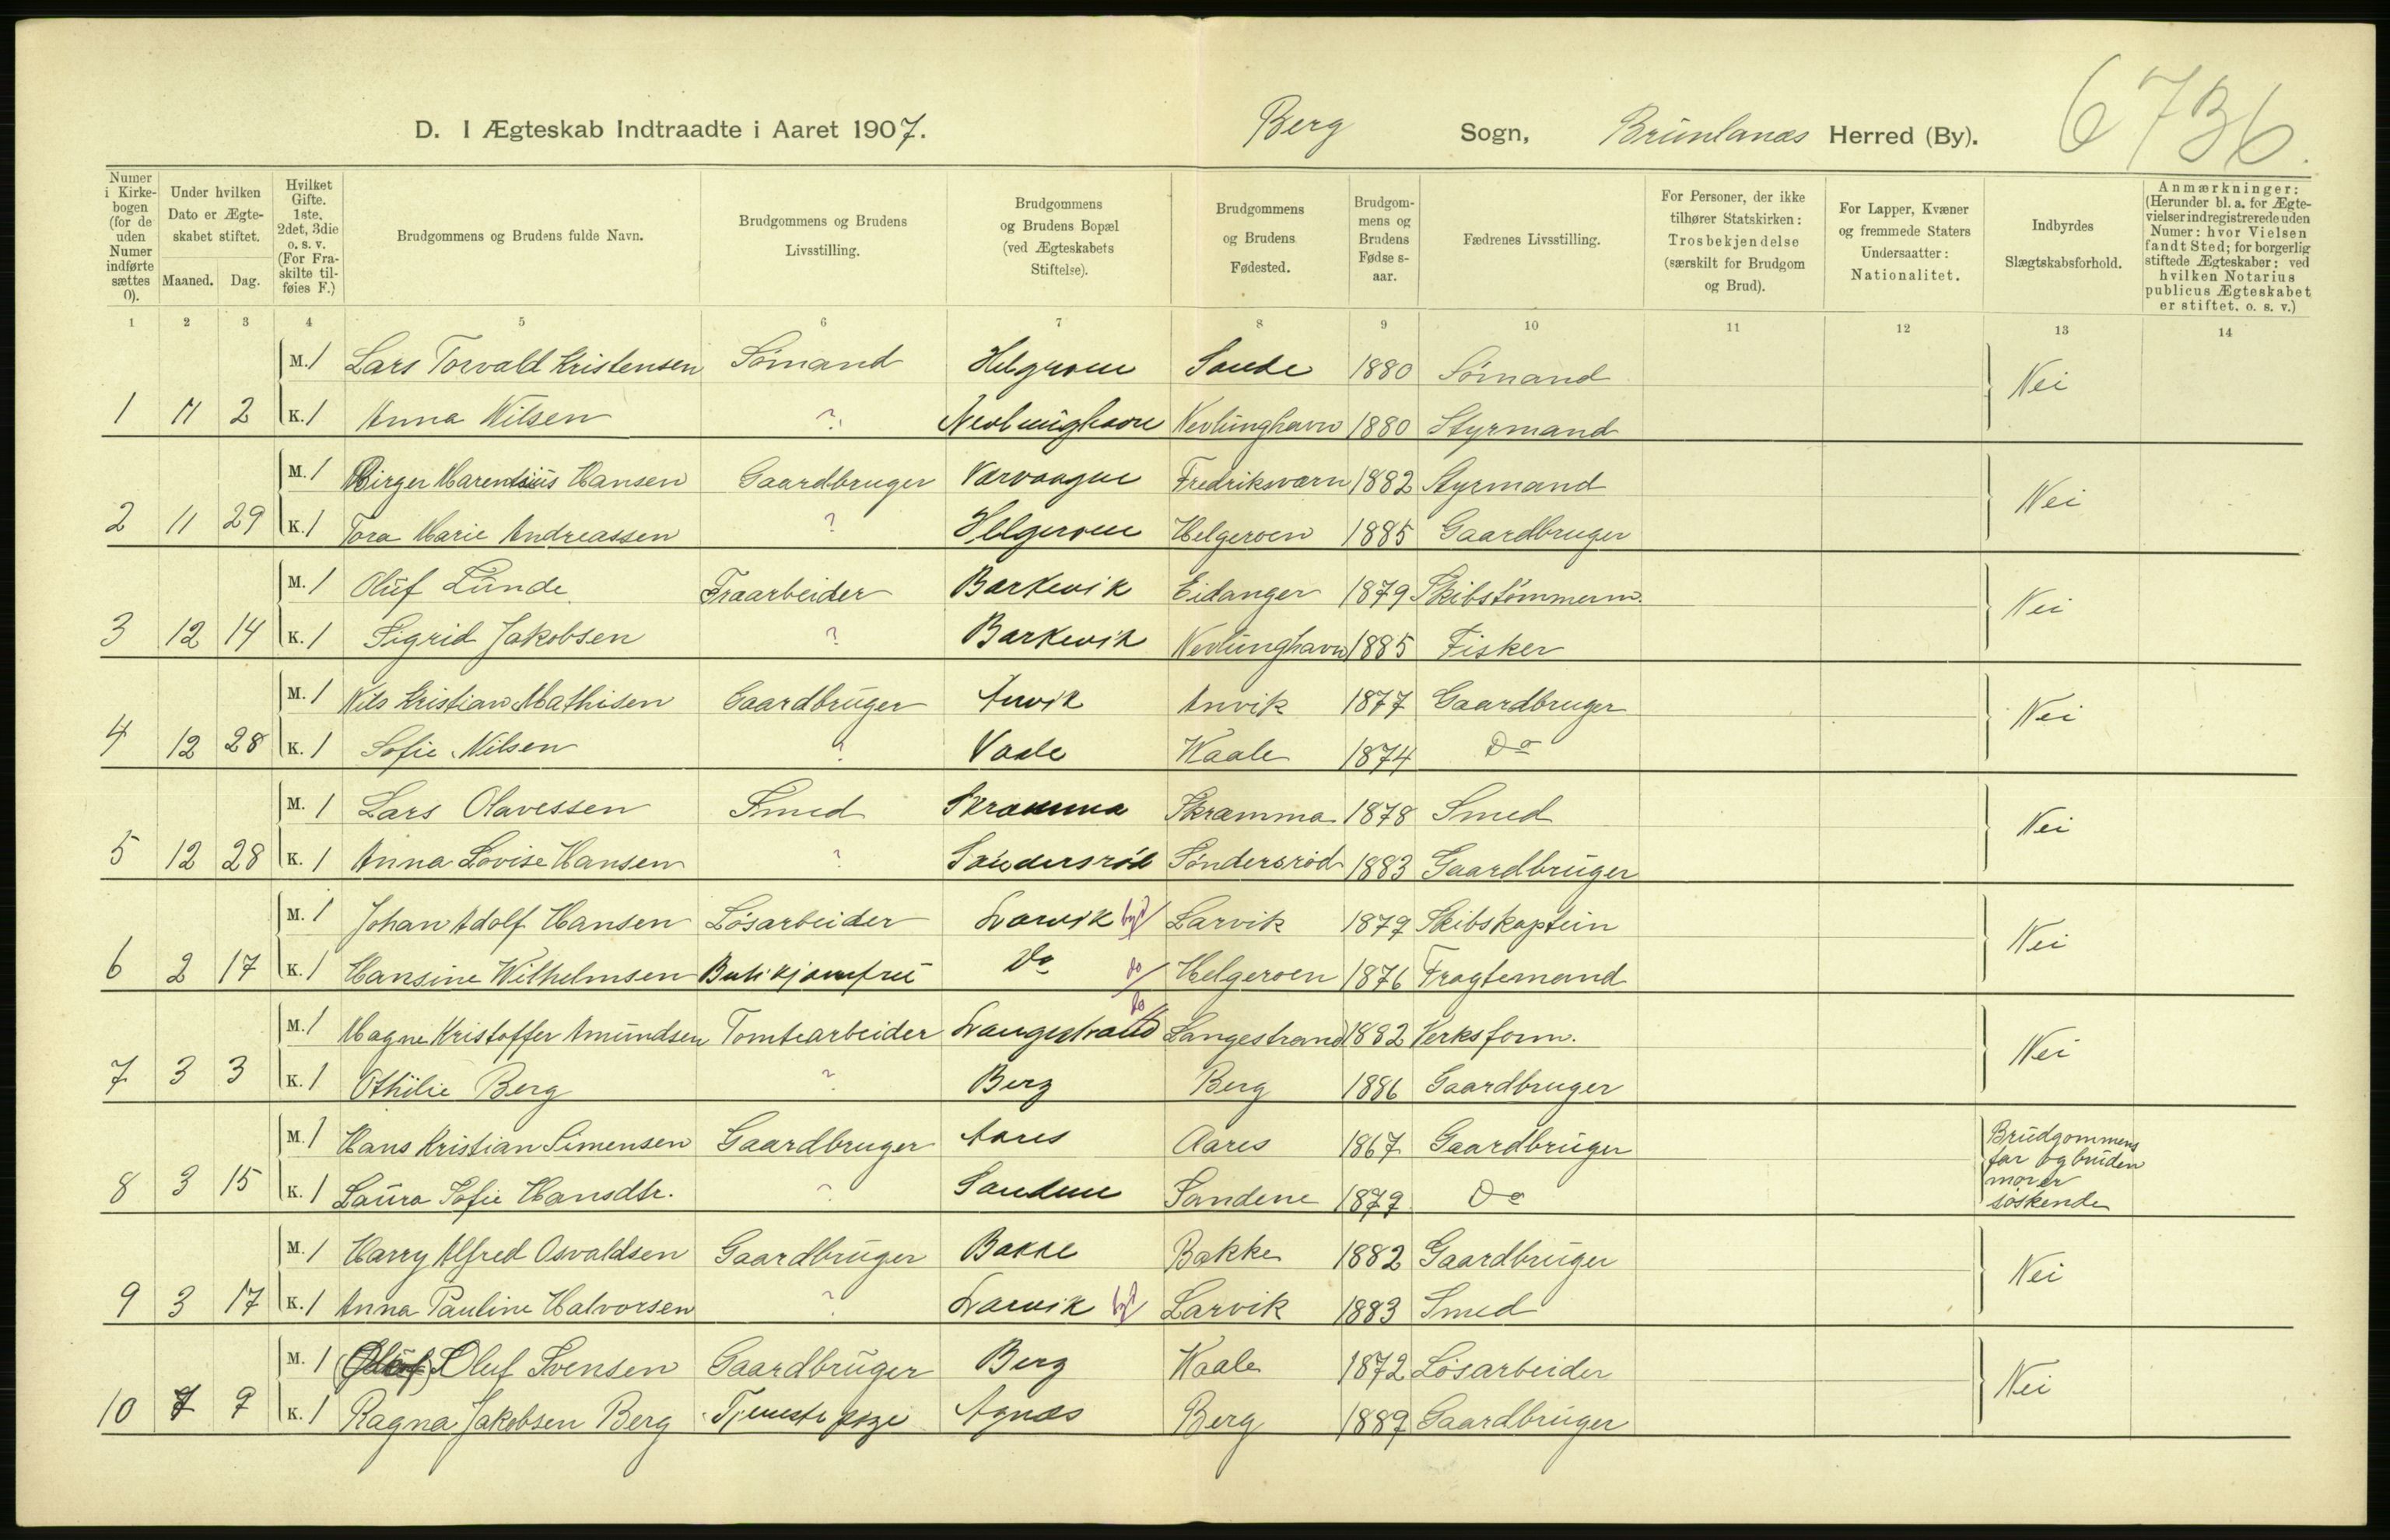 D. I Ægteskab Indtraadte i Aaret 1907. Berg Sogn, Brunlanæs Herred (By). 6736.
Numer i Kirkebogen (for de uden Numer indførte sættes 0).
Under hvilken Dato er Ægteskabet stiftet.
Maaned. Dag.
Hvilket Gifte. 1ste, 2det, 3die o. s. v. (For Fraskilte tilføies F.)
Brudgommens og Brudens fulde Navn.
Brudgommens og Brudens Livsstilling.
Brudgommens og Brudens Bopæl (ved Ægteskabets Stiftelse).
Brudgommens og Brudens Fødested.
Brudgommens og Brudens Fødselsaar.
Fædrenes Livsstilling.
For Personer, der ikke tilhører Statskirken: Trosbekjendelse (særskilt for Brudgom og Brud).
For Lapper, Kvæner og fremmede Staters Undersaatter: Nationalitet.
Indbyrdes Slægtskabsforhold.
Anmærkninger: (Herunder bl. a. for Ægtevielser indregistrerede uden Numer: hvor Vielsen fandt Sted; for borgerlig stiftede Ægteskaber: ved hvilken Notarius publicus Ægteskabet er stiftet. o. s. v.)
1 2 3 4 5 6 7 8 9 10 11 12 13 14
M. 1 Lars Torvald Kristensen Sömand Helgroen Sande 1880 Sömand Nei
1 11 2 K. 1 Anna Nilsen ? Nevlunghavn Nevlunghavn 1880 Styrmand
M. 1 Birger Marentsius Hansen Gaardbruger Varvaagne Fredriksværn 1882 Styrmand Nei
2 11 29 K. 1 Tora Marie Andreassen ? Helgeroen Helgeroen 1885 Gaardbruger
M. 1 Oluf Lunde Traarbeider Barkevik Eidanger 1879 Skibstömmerm. Nei
3 12 14 K. 1 Sigrid Jakobsen ? Barkevik Nevlunghavn 1885 Fisker
M. 1 Nils Kristian Mathisen Gaardbruger Anvik Anvik 1877 Gaardbruger Nei
4 12 28 K. 1 Sofie Nilsen ? Vaale Vaale 1874 Do
M. 1 Lars Olavessen Smed Skramma Skramma 1878 Smed Nei
5 12 28 K. 1 Anna Lovise Hansen ? Söndersröd Söndersröd 1883 Gaardbruger
M. 1 Johan Adolf Hansen Lösarbeider Larvik by Larvik 1877 Skibskaptein Nei
6 2 17 K. 1 Hansine Wilhelmsen Butikjomfru Do do Helgeroen 1876 Fragtemand
M. 1 Magne Kristoffer Amundsen Tomtearbeider Langestrand do Langestrand 1882 Verksform. Nei
7 3 3 K. 1 Othilie Berg ? Berg Berg 1886 Gaardbruger
M. 1 Hans Kristian Simensen Gaardbruger Aares Aares 1867 Gaardbruger Brudgommens far og bruden mor er söskende
8 3 15 K. 1 Laura Sofie Hansdtr. ? Sandene Sandene 1879 Do
M. 1 Harry Alfred Osvaldsen Gaardbruger Bakke Bakke 1882 Gaardbruger Nei
9 3 17 K. 1 Anna Pauline Halvorsen ? Larvik by Larvik 1883 Smed
M. 1 Oluf Svensen Gaardbruger Berg Vaale 1872 Lösarbeider Nei
10 7 7 K. 1 Ragna Jakobsen Berg Tjenestepige Agnæs Berg 1889 Gaardbruger